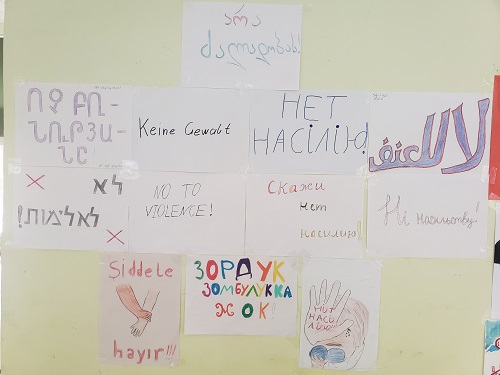 არა
ძალადობას!
ՈՉ ԲՌ-
ՆՈՒԹՅԱ-
ՆԸ
Keine Gewalt
НЕТ
НАСіЛіЮ!
لا للعنف
לא
לאלמות!
NO TO
VIOLENCE!
Скажи
нет
насилию!
Ні насильству!
Şiddete
hayır!!!
ЗОРДУК
ЗОМБУЛУККА
ЖОК!
НЕТ
НАСИ
ЛИЮ!